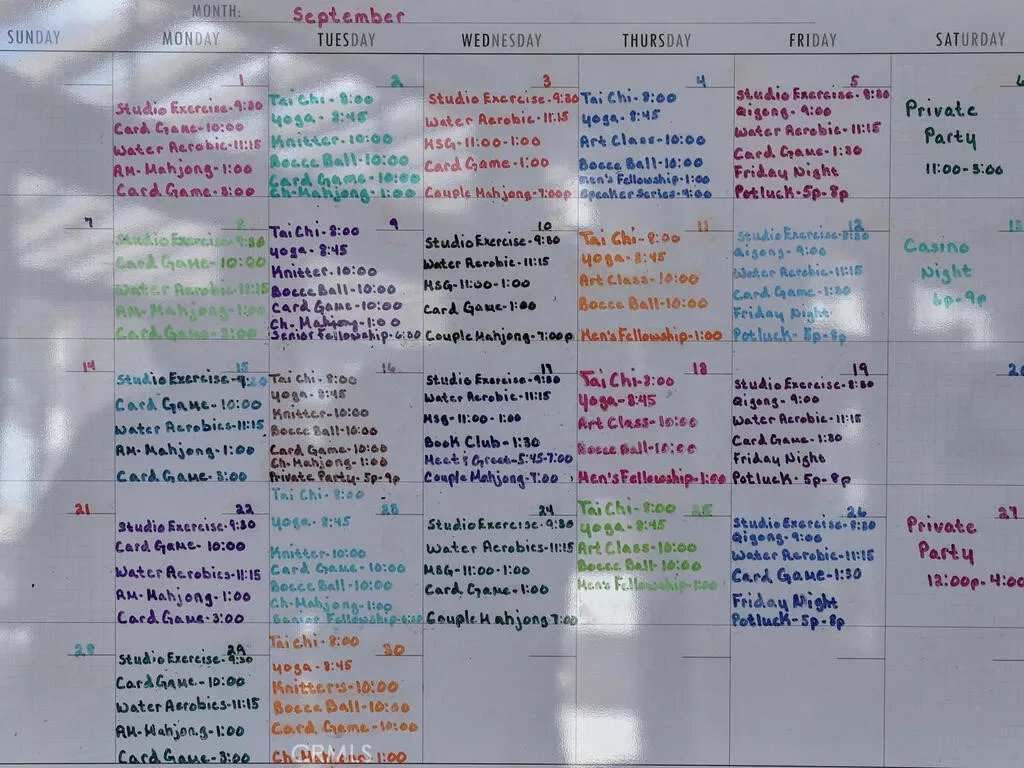 MONTH: September
SUNDAY MONDAY TUESDAY WEDNESDAY THURSDAY FRIDAY SATURDAY
1
Studio Exercise-9:30
Card Game-10:00
Water Aerobic-11:15
AM-Mahjong-1:00
Card Game-3:00
2
Tai Chi-8:00
Yoga-8:45
Knitter-10:00
Bocce Ball-10:00
Card Game-10:00
Ch-Mahjong-1:00
3
Studio Exercise-9:30
Water Aerobic-11:15
MSG-11:00-1:00
Card Game-1:00
Couple Mahjong-7:00p
4
Tai Chi-8:00
Yoga-8:45
Art Class-10:00
Bocce Ball-10:00
Men's Fellowship-1:00
Speaker Series-9:00
5
Studio Exercise-8:30
Qigong-9:00
Water Aerobic-11:15
Card Game-1:30
Friday Night
Potluck-5p-8p
6
Private
Party
11:00-5:00
7
8
Studio Exercise-9:30
Card Game-10:00
Water Aerobic-11:15
AM-Mahjong-1:00
Card Game-3:00
9
Tai Chi-8:00
Yoga-8:45
Knitter-10:00
Bocce Ball-10:00
Card Game-10:00
Ch-Mahjong-1:00
Senior Fellowship-6:30
10
Studio Exercise-9:30
Water Aerobic-11:15
MSG-11:00-1:00
Card Game-1:00
Couple Mahjong-7:00p
11
Tai Chi-8:00
Yoga-8:45
Art Class-10:00
Bocce Ball-10:00
Men's Fellowship-1:00
12
Studio Exercise-8:30
Qigong-9:00
Water Aerobic-11:15
Card Game-1:30
Friday Night
Potluck-5p-8p
13
Casino
Night
6p-9p
14
15
Studio Exercise-9:30
Card Game-10:00
Water Aerobics-11:15
AM-Mahjong-1:00
Card Game-3:00
16
Tai Chi-8:00
Yoga-8:45
Knitter-10:00
Bocce Ball-10:00
Card Game-10:00
Ch-Mahjong-1:00
Private Party-5p-9p
17
Studio Exercise-9:30
Water Aerobic-11:15
MSG-11:00-1:00
Book Club-1:30
Meet & Greet-5:45-7:00
Couple Mahjong-7:00
18
Tai Chi-8:00
Yoga-8:45
Art Class-10:00
Bocce Ball-10:00
Men's Fellowship-1:00
19
Studio Exercise-8:30
Qigong-9:00
Water Aerobic-11:15
Card Game-1:30
Friday Night
Potluck-5p-8p
20
21
22
Studio Exercise-9:30
Card Game-10:00
Water Aerobics-11:15
AM-Mahjong-1:00
Card Game-3:00
23
Tai Chi-8:00
Yoga-8:45
Knitter-10:00
Card Game-10:00
Bocce Ball-10:00
Ch-Mahjong-1:00
Senior Fellowship-6:30
24
Studio Exercise-9:30
Water Aerobics-11:15
MSG-11:00-1:00
Card Game-1:00
Couple Mahjong 7:00
25
Tai Chi-8:00
Yoga-8:45
Art Class-10:00
Bocce Ball-10:00
Men's Fellowship-1:00
26
Studio Exercise-8:30
Qigong-9:00
Water Aerobic-11:15
Card Game-1:30
Friday Night
Potluck-5p-8p
27
Private
Party
12:00p-4:00
28
29
Studio Exercise-9:30
Card Game-10:00
Water Aerobics-11:15
AM-Mahjong-1:00
Card Game-3:00
30
Tai Chi-8:00
Yoga-8:45
Knitter's-10:00
Bocce Ball-10:00
Card Game-10:00
Ch-Mahjong 1:00
CRMLS